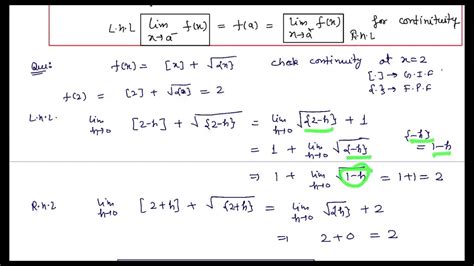 L.H.L lim x→a⁻ f(x) = f(a) = lim x→a⁺ f(x) R.H.L for continuity
Que: f(x) = [x] + √{x} check continuity at x=2
[.] → G.I.F
{.} → F.P.F
f(2) = [2] + √{2} = 2
L.H.L. lim h→0 [2-h] + √{2-h} = lim h→0 √{2-h} + 1
= 1 + lim h→0 √{-h} {-h} = 1-h
⇒ 1 + lim h→0 √1-h = 1+1 = 2
R.H.L lim h→0 [2+h] + √{2+h} = lim h→0 √{h} + 2
⇒ 2+0 = 2